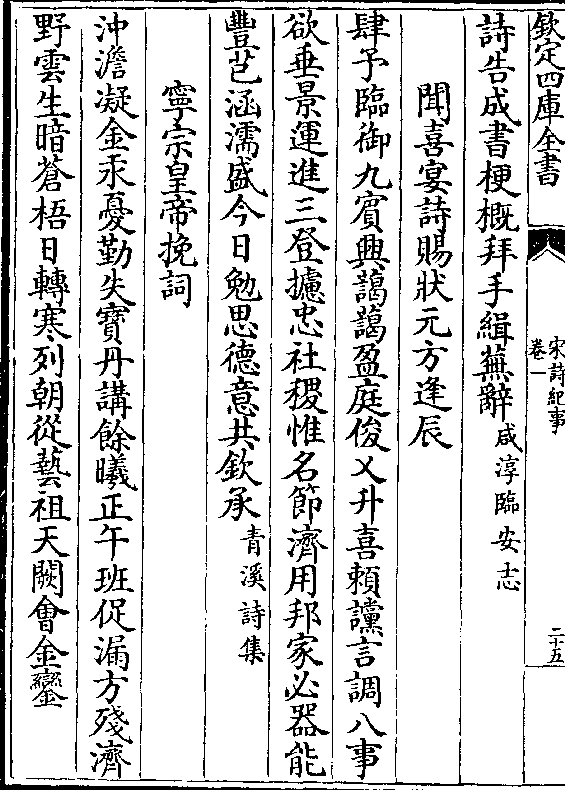 欽定四庫全書
宋詩紀事
卷一
二十五
詩告成書梗概拜手緝蕪辭咸淳臨安志
聞喜宴詩賜狀元方逢辰
肆予臨御九賓興藹藹盈庭俊乂升喜賴讜言調八事
欲垂景運進三登攄忠社稷惟名節濟用邦家必器能
豐芑涵濡盛今日勉思德意共欽承青溪詩集
寧宗皇帝挽詞
沖澹凝金汞憂勤失寶丹講餘曦正午班促漏方殘濟
野雲生暗蒼梧日轉寒列朝從藝祖天闕會金鑾